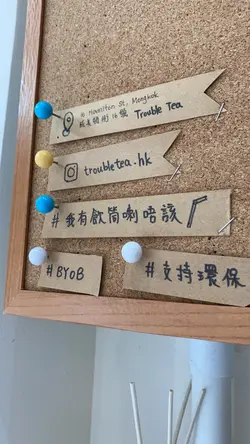 16 Hamilton St, Mongkok
咸美頓街16號 Trouble Tea
troubletea.hk
#我有飲筒喇唔該
#BYOB
#支持環保